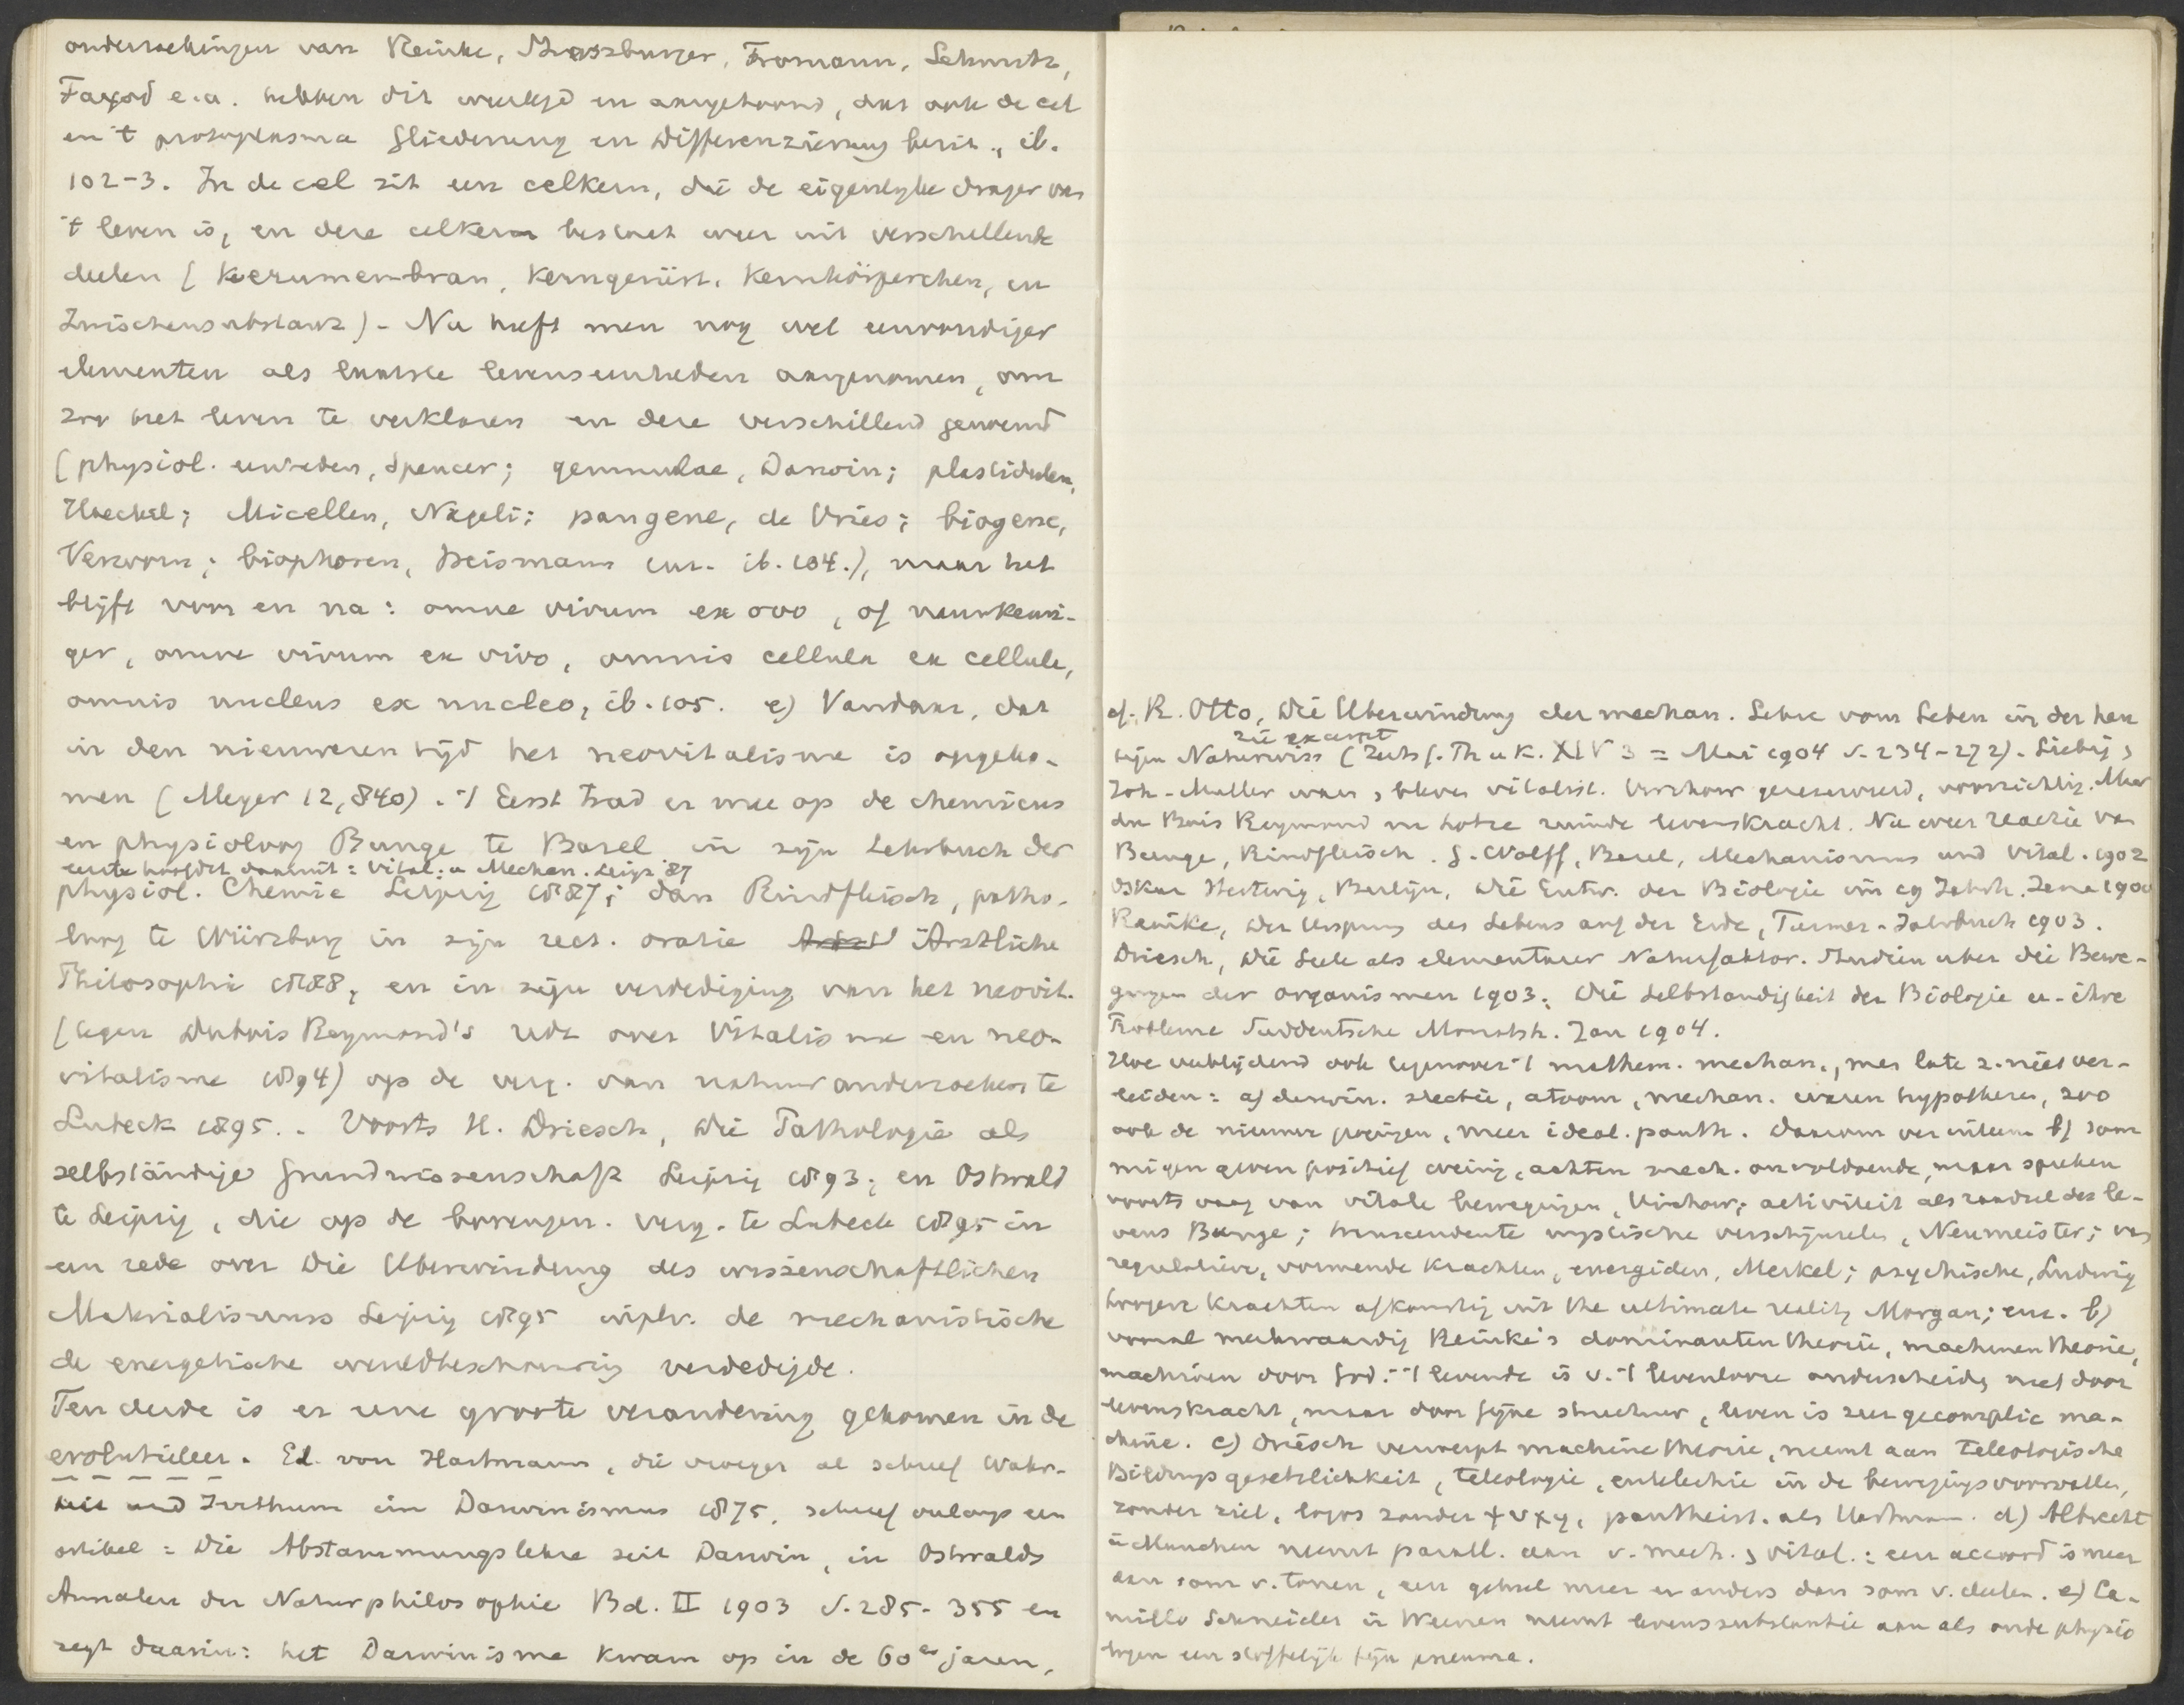 onderzoekingen van Reinke, Straszburger, Fromann, Schmitz,
Fayod e.a. hebben dit weerlegd en aangetoond, dat ook de cel
en 't protoplasma Gliederung en Differenzierung bezit, ib.
102-3. In de cel zit een celkern, die de eigenlijke drager van
't leven is, en deze celkern bestaat weer uit verschillende
deelen (Kernmembran, Kerngerüst, Kernkörperchen, en
Zwischensubstanz) - Nu heeft men nog wel eenvoudiger
elementen als laatste levenseenheden aangenomen, om
zoo het leven te verklaren en deze verschillend genoemd
(physiol. eenheden, Spencer; gemmulae, Darwin; plastidulen,
Haeckel; Micellen, Nägeli; pangene, de Vries; biogene,
Verworn; biophoren, Weismann enz. ib. 104.), maar het
blijft voor en na: omne vivum ex ovo, of nauwkeuri-
ger, omne vivum ex vivo, omnis cellula ex cellula,
omnis nucleus ex nucleo, ib. 105. e) Vandaar, dat
in den nieuweren tijd het neovitalisme is opgeko-
men (Meyer 12,840). Eerst trad er mee op de chemicus
en physioloog Bunge te Basel in zijn Lehrbuch der
eerste hoofdst daaruit: Vital. u Mechan. Leipz '87
physiol. Chemie Leipzig 1887; dan Rindfleisch, patho-
loog te Würzburg in zijn rect. oratie Ärztliche
Philosophie 1888, en in zijn verdediging van het neovit.
(tegen Dubois Reymond's rede over Vitalisme en neo-
vitalisme 1894) op de verg. van natuuronderzoekers te
Lubeck 1895. Voorts H. Driesch, Die Pathologie als
selbständige Grundwissenschaft Leipzig 1893; en Ostwald
te Leipzig, die op de bovengen. verg. te Lubeck 1895 in
een rede over Die Überwindung des wissenschaftlichen
Materialismus Leipzig 1895 in plv. de mechanistische
de energetische wereldbeschouwing verdedigde.
Ten derde is er eene groote verandering gekomen in de
evolutieleer. Ed. von Hartmann, die vroeger al schreef Wahr-
heit und Irrthum im Darwinismus 1875, schreef onlangs een
artikel: Die Abstammungslehre seit Darwin, in Ostwalds
Annalen der Naturphilosophie Bd. II 1903 S. 285-355 en
zegt daarin: het Darwinisme kwam op in de 60er jaren,
cf. R. Otto, Die Überwindung der mechan. Lehre vom Leben in der heu
zie excerpt
tigen Naturwiss (Zeits f. Th u K. XIV 3 = Mai 1904 S. 234-272). Liebig &
Joh-Muller waren, bleven vitalist. Virchow gereserveerd, voorzichtig. Maar
du Bois Reymond en Lotze levenskracht. Nu weer reactie van
Bunge, Rindfleisch. G. Wolff, Basel, Mechanismus und Vital. 1902
Oskar Hertwig, Berlijn, Die Entw. der Biologie im 19 Jahrh. Jena 1900
Reinke, Der Ursprung des Lebens auf der Erde, Turmer-Jahrbuch 1903.
Driesch, Die Seele als elementarer Naturfaktor. Studien uber die Bewe-
gungen der organismen 1903. Die Selbstandigkeit der Biologie u. ihre
Probleme Suddeutsche Monatsh. Jan 1904.
Hoe verblijdend ook tegenover 't mathem. mechan., men late z. niet ver-
leiden: a) darwin. selectie, atoom, mechan. waren hypothesen, zoo
ook de nieuwe pogingen, meer ideal. panth. Daarom b) som
migen geven positief weinig, achten mech. onvoldoende, maar spreken
voorts vaag van vitale bewegingen, Virchow; activiteit als raadsel des le-
vens Bunge; transcendente mystische verschijnselen, Neumeister; van
regulatieve, vormende krachten, energiden, Merkel; psychische, Ludwig
hoogere krachten afkomstig uit the ultimate reality Morgan; enz. b)
vooral merkwaardig Reinke's dominantentheorie, machinentheorie,
machinen door God. 't levende is v. 't levenlooze onderscheiden niet door
levenskracht, maar door fijne structuur, leven is zeer gecomplic ma-
chine. c) Driesch verwerpt machinetheorie, neemt aan teleologische
Bildungsgesetzlichkeit, teleologie, entelechie in de bewegingsvoorvallen,
zonder ziel, logos zonder ψυχη, pantheist. als Hartmann. d) Albrecht
in Munchen neemt parall. aan v. mech. & vital.: een accoord is meer
dan som v. tonen, een geheel meer en anders dan som v. deelen. e) Ca-
millo Schneider in Weenen neemt levenssubstantie aan als oude physio
logen een stoffelijk fijn pneuma.